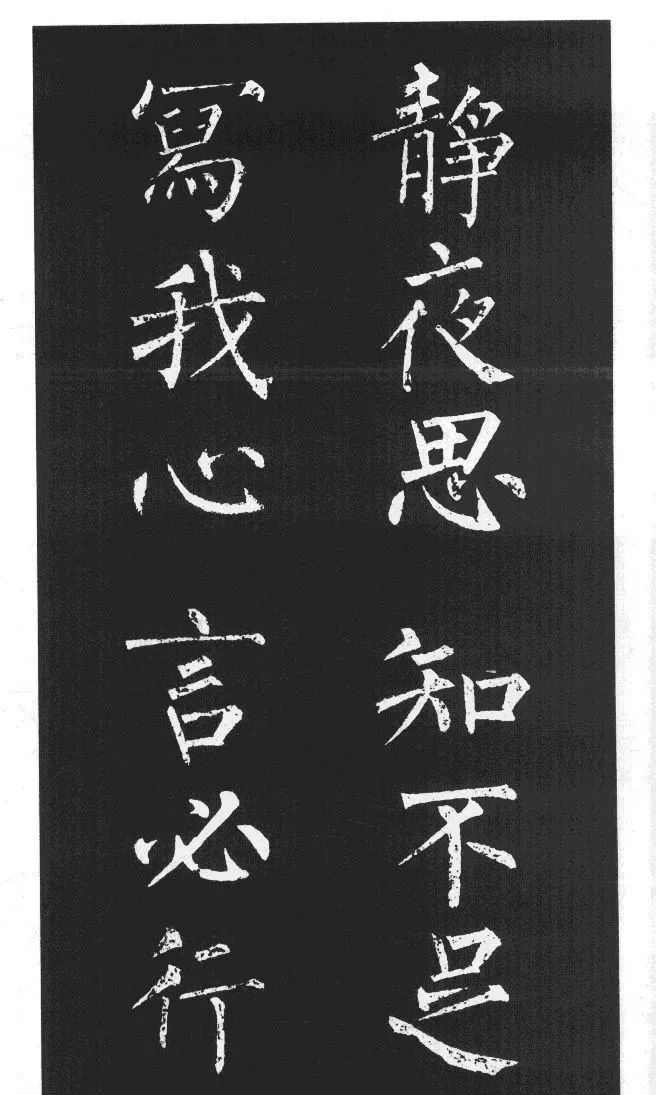 靜夜思知不足
寫我心言必行